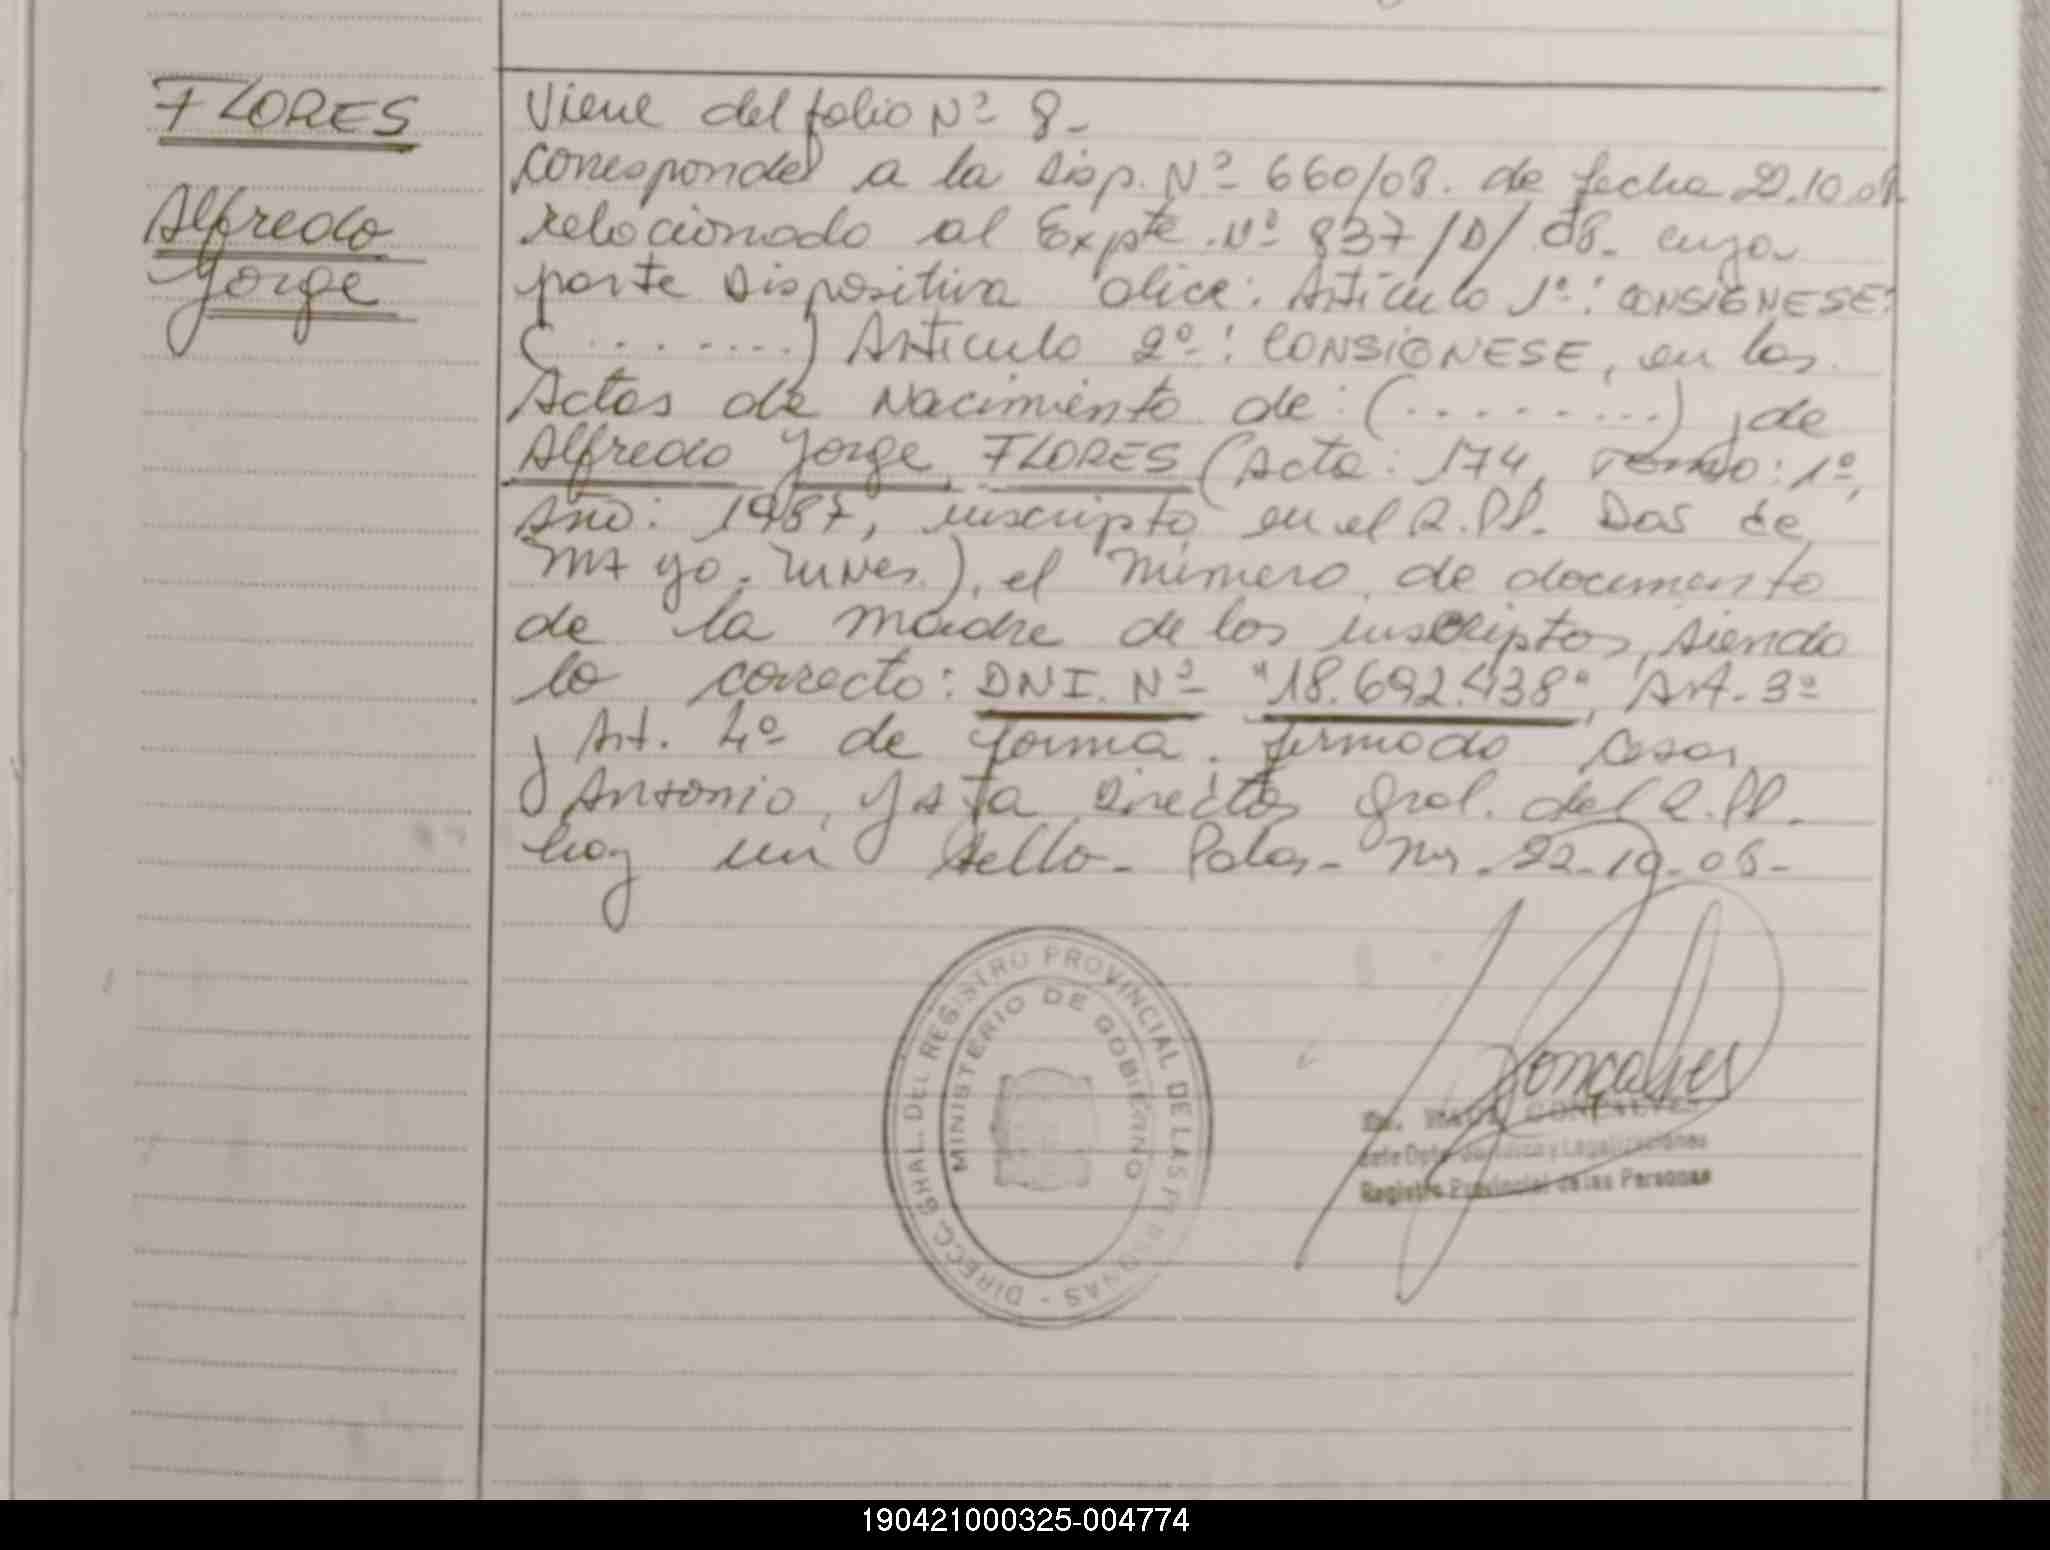 FLORES
Alfredo
Jorge
Viene del folio Nº 8-
Corresponde a la Disp. Nº 660/08. de fecha 22.10.08.
relacionado al Expte. Nº 837/D/08- cuya
parte Dispositiva dice: Artículo 1º: CONSIGNESE:
(.......) Artículo 2º: CONSIGNESE, en las
Actas de Nacimiento de: (........), de
Alfredo Jorge FLORES (Acta: 174, Tomo: 1º,
Año: 1987, inscripto en el R.PP. Dos de
MAyo.), el Número de documento
de la madre de los inscriptos, siendo
lo correcto: DNI. Nº "18.692.438", Art. 3º
y Art. 4º de forma. firmado Cesar
Antonio Director Gral. del R.PP.
hay un sello- 22-10-08-
DIRECC. GRAL. DEL REGISTRO PROVINCIAL DE LAS PERSONAS -
MINISTERIO DE GOBIERNO
Goncalves
GONCALVES
Jefe Dpto. Jurídico y Legalizaciones
Registro Provincial de las Personas
190421000325-004774